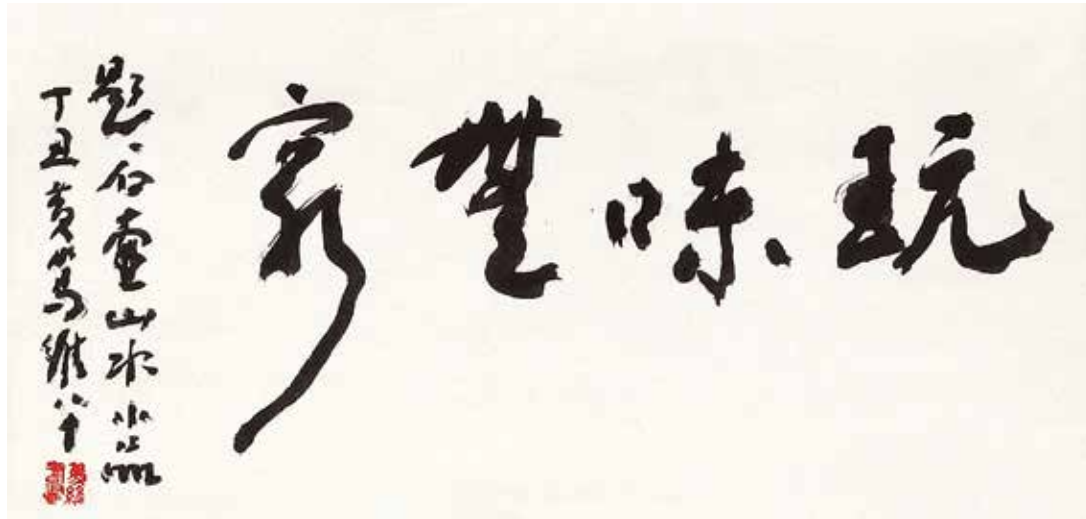 玩味無窮
題石壺山水小品
丁丑黃篤維八十